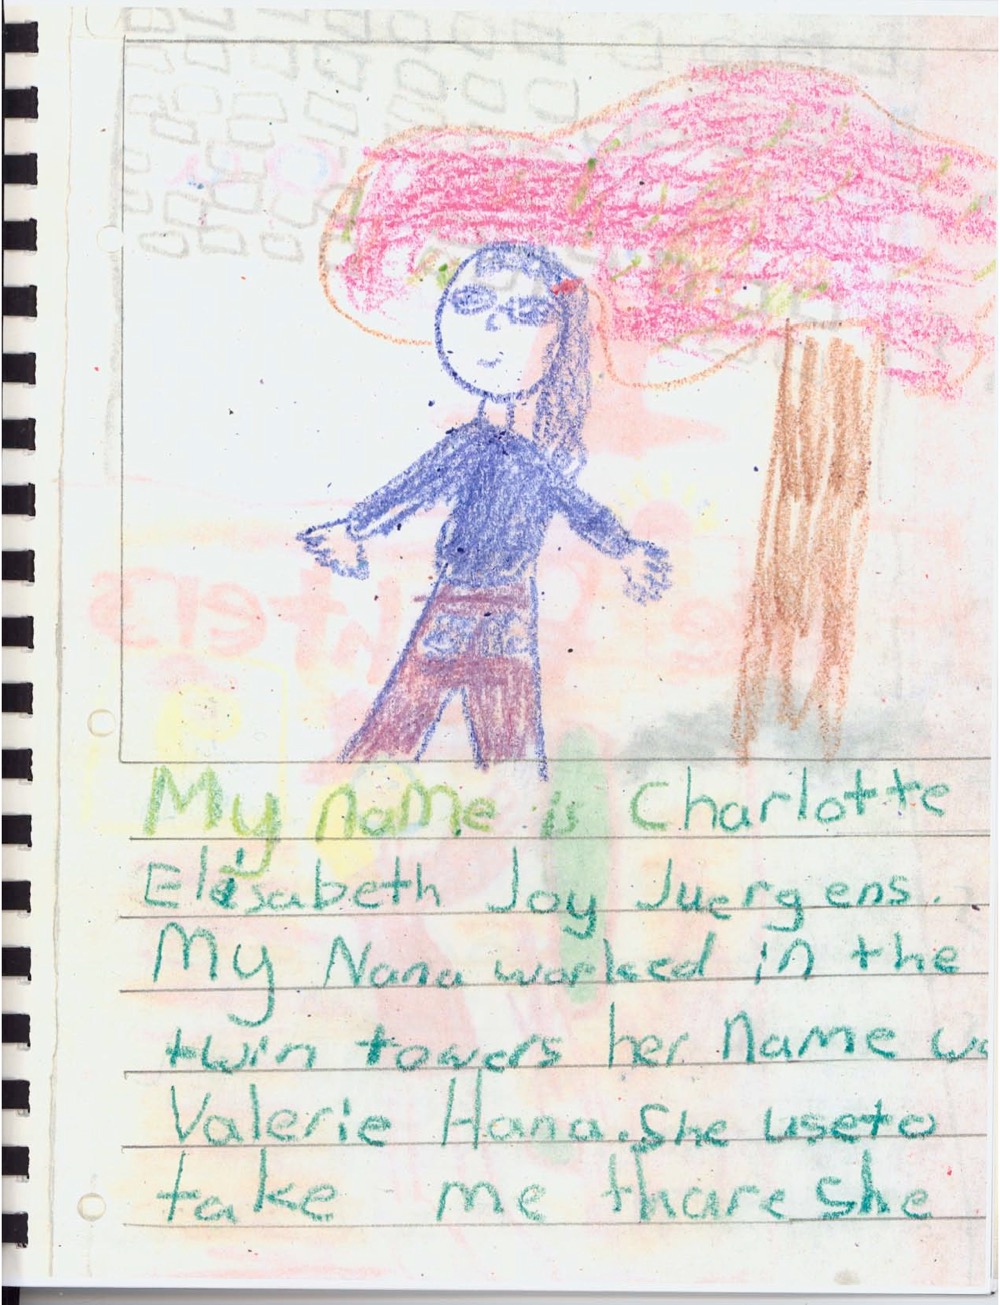 My name is Charlotte
Elisabeth Joy Juergens.
My Nana worked in the
twin towers her name wa
Valerie Hana. She useto
take me thare she